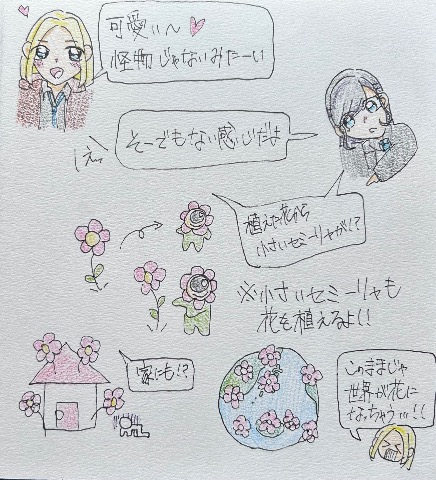 可愛いぃ〜♥
怪物じゃないみたーい
そーでもない感じだよ
えっ
植えた花から
小さいセミーリャが!?
※小さいセミーリャも
花を植えるよ!!
家にも!?
このままじゃ
世界が花に
なっちゃう…!!